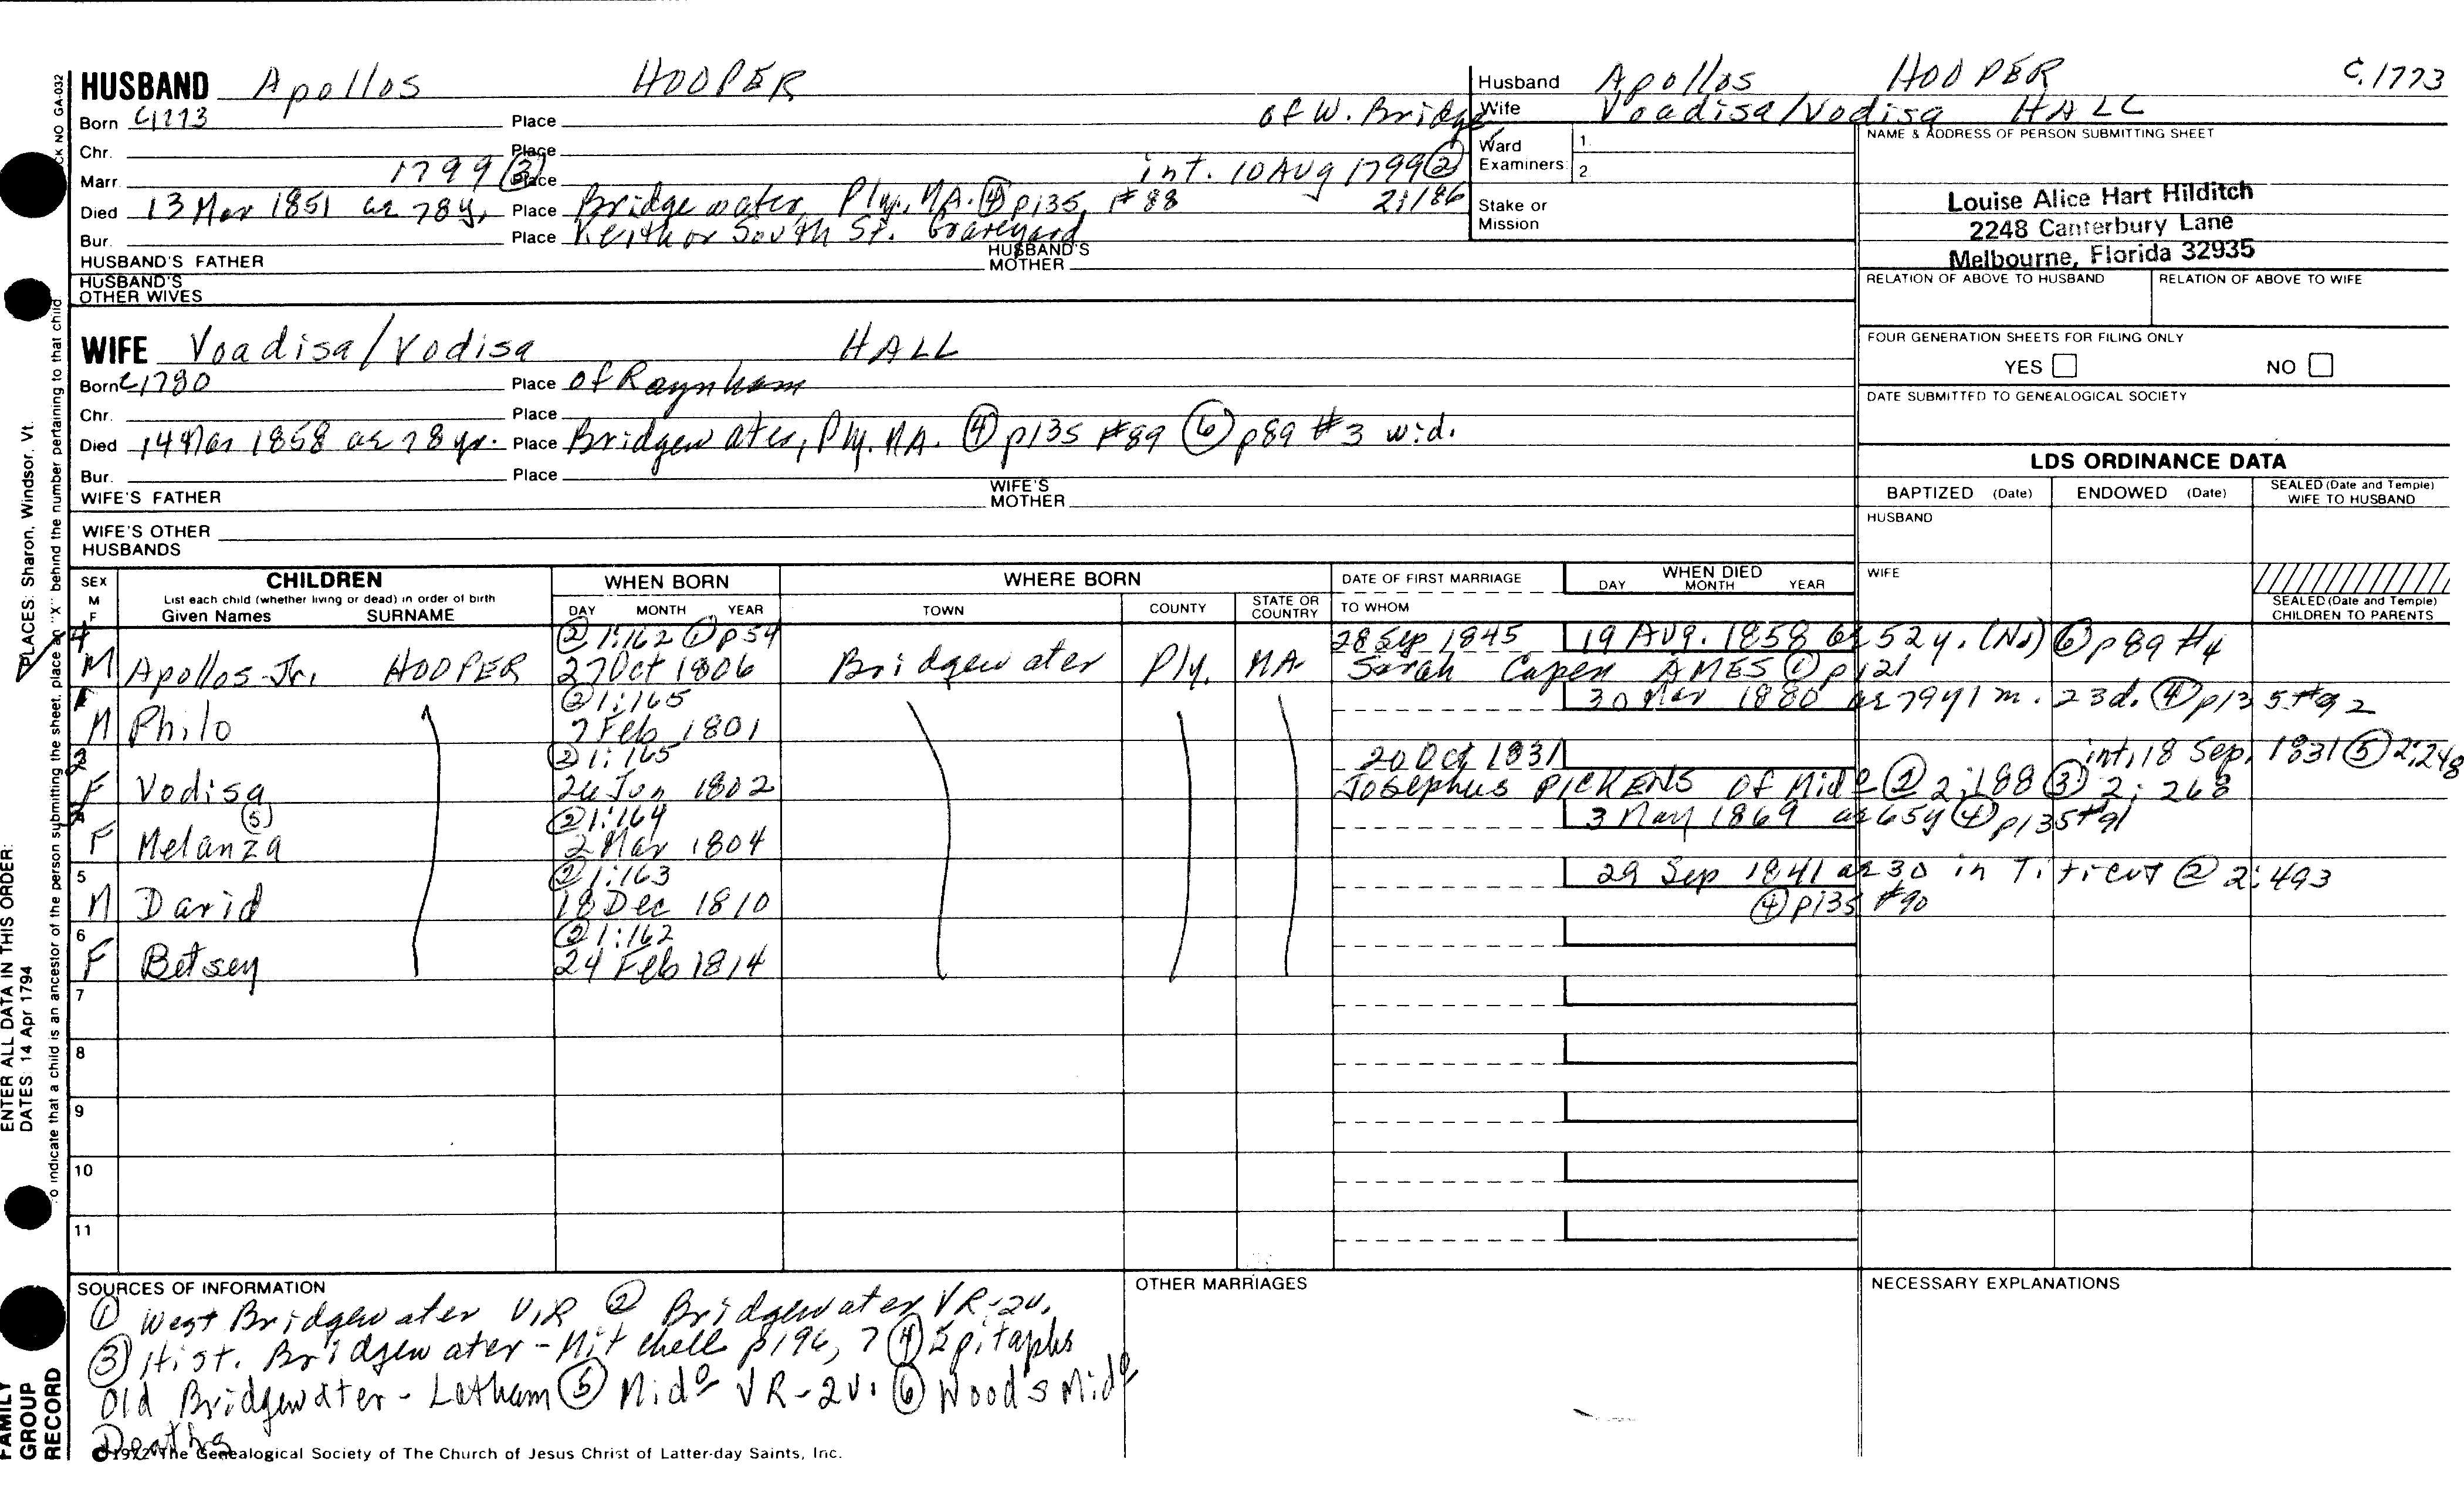 HUSBAND Apollos HOOPER
Born c1773 Place of W. Bridge
Chr. Place
Marr. 1799 ③ Place int. 10 Aug 1799 ②
Died 13 Mar 1851 ae 78y. Place Bridgewater, Ply., MA. ④ p135, #88 2:186
Bur. Place Keith or South St. Graveyard
HUSBAND'S FATHER HUSBAND'S MOTHER
HUSBAND'S OTHER WIVES
Husband Apollos HOOPER c.1773
Wife Voadisa/Vodisa HALL
Ward 1.
Examiners: 2
Stake or Mission
NAME & ADDRESS OF PERSON SUBMITTING SHEET
Louise Alice Hart Hilditch
2248 Canterbury Lane
Melbourne, Florida 32935
RELATION OF ABOVE TO HUSBAND RELATION OF ABOVE TO WIFE
FOUR GENERATION SHEETS FOR FILING ONLY
YES NO
DATE SUBMITTED TO GENEALOGICAL SOCIETY
WIFE Voadisa/Vodisa HALL
Born c1780 Place of Raynham
Chr. Place
Died 14 Mar 1858 ae 78 yr. Place Bridgewater, Ply. MA. ④ p135 #89 ⑥ p89 #3 wid.
Bur. Place
WIFE'S FATHER WIFE'S MOTHER
WIFE'S OTHER HUSBANDS
LDS ORDINANCE DATA
BAPTIZED (Date) ENDOWED (Date) SEALED (Date and Temple) WIFE TO HUSBAND
HUSBAND
WIFE
SEALED (Date and Temple) CHILDREN TO PARENTS
SEX M F
CHILDREN
List each child (whether living or dead) in order of birth
Given Names SURNAME
WHEN BORN
DAY MONTH YEAR
WHERE BORN
TOWN COUNTY STATE OR COUNTRY
DATE OF FIRST MARRIAGE
TO WHOM
WHEN DIED
DAY MONTH YEAR
4 ② 1:162 ① p54 28 Sep 1845 19 Aug. 1858 ae 52y. (No) ⑥ p89 #4
M Apollos Jr. HOOPER 27 Oct 1806 Bridgewater Ply. MA Sarah Capen AMES ① p121
1 ② 1:165 30 Mar 1880 ae 79y 1m. 23d. ④ p135 #92
M Philo 7 Feb 1801
2 ② 1:165 20 Oct 1831 int. 18 Sep. 1831 ⑤ 2:248
F Vodisa 26 Jun 1802 Josephus PICKENS of Mide ② 2:188 ③ 2:268
⑤ ② 1:164 3 May 1869 ae 65y ④ p135 #91
F Melanza 2 Mar 1804
5 ② 1:163 29 Sep 1841 ae 30 in Titicut ② 2:493
M David 18 Dec 1810 ④ p135 #90
6 ② 1:162
F Betsey 24 Feb 1814
7
8
9
10
11
SOURCES OF INFORMATION
① West Bridgewater V.R ② Bridgewater VR-2v.
③ Hist. Bridgewater - Mitchell p196, 7 ④ Epitaphs
Old Bridgewater - Latham ⑤ Mide VR-2v. ⑥ Wood's Mide
Deaths
OTHER MARRIAGES
NECESSARY EXPLANATIONS
©1972 The Genealogical Society of The Church of Jesus Christ of Latter-day Saints, Inc.
CK NO GA-032
To indicate that a child is an ancestor of the person submitting the sheet, place an "X" behind the number pertaining to that child
PLACES: Sharon, Windsor, Vt.
ENTER ALL DATA IN THIS ORDER:
DATES: 14 Apr 1794
FAMILY GROUP RECORD